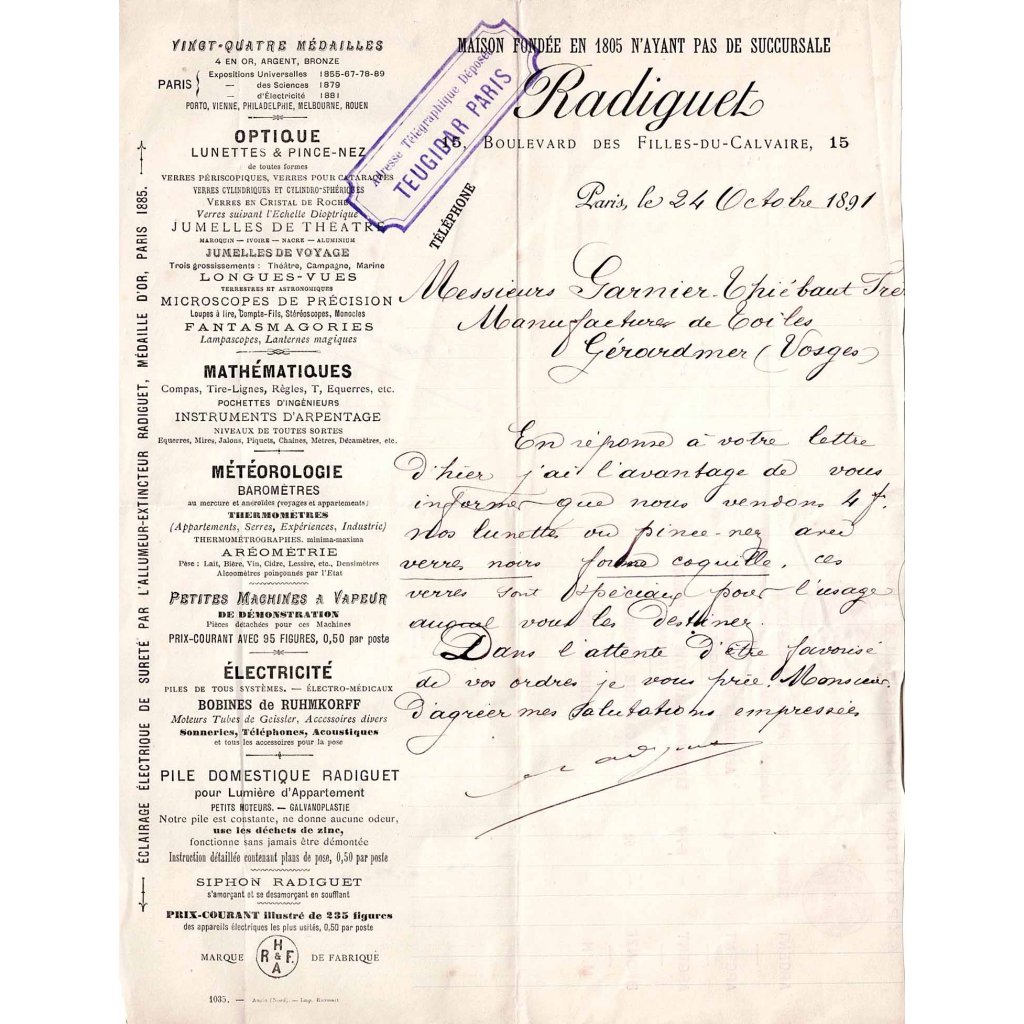 VINGT-QUATRE MÉDAILLES
4 EN OR, ARGENT, BRONZE
PARIS
Expositions Universelles 1855-67-78-89
— des Sciences 1879
— d'Électricité 1881
PORTO, VIENNE, PHILADELPHIE, MELBOURNE, ROUEN
OPTIQUE
LUNETTES & PINCE-NEZ
de toutes formes
VERRES PÉRISCOPIQUES, VERRES POUR CATARACTES
VERRES CYLINDRIQUES ET CYLINDRO-SPHÉRIQUES
VERRES EN CRISTAL DE ROCHE
Verres suivant l'Echelle Dioptrique
JUMELLES DE THÉATRE
MAROQUIN — IVOIRE — NACRE — ALUMINIUM
JUMELLES DE VOYAGE
Trois grossissements : Théâtre, Campagne, Marine
LONGUES-VUES
TERRESTRES ET ASTRONOMIQUES
MICROSCOPES DE PRÉCISION
Loupes à lire, Compte-Fils, Stéréoscopes, Monocles
FANTASMAGORIES
Lampascopes, Lanternes magiques
MATHÉMATIQUES
Compas, Tire-Lignes, Règles, T, Equerres, etc.
POCHETTES D'INGÉNIEURS
INSTRUMENTS D'ARPENTAGE
NIVEAUX DE TOUTES SORTES
Equerres, Mires, Jalons, Piquets, Chaines, Mètres, Décamètres, etc.
MÉTÉOROLOGIE
BAROMÈTRES
au mercure et anéroïdes (voyages et appartements)
THERMOMÈTRES
(Appartements, Serres, Expériences, Industrie)
THERMOMÉTROGRAPHES. minima-maxima
ARÉOMÉTRIE
Pèse : Lait, Bière, Vin, Cidre, Lessive, etc., Densimètres
Alcoomètres poinçonnés par l'Etat
PETITES MACHINES A VAPEUR
DE DÉMONSTRATION
Pièces détachées pour ces Machines
PRIX-COURANT AVEC 95 FIGURES, 0,50 par poste
ÉLECTRICITÉ
PILES DE TOUS SYSTÈMES. — ÉLECTRO-MÉDICAUX
BOBINES de RUHMKORFF
Moteurs Tubes de Geissler, Accessoires divers
Sonneries, Téléphones, Acoustiques
et tous les accessoires pour la pose
PILE DOMESTIQUE RADIGUET
pour Lumière d'Appartement
PETITS MOTEURS. — GALVANOPLASTIE
Notre pile est constante, ne donne aucune odeur,
use les déchets de zinc,
fonctionne sans jamais être démontée
Instruction détaillée contenant plans de pose, 0,50 par poste
SIPHON RADIGUET
s'amorçant et se desamorçant en soufflant
PRIX-COURANT illustré de 235 figures
des appareils électriques les plus usités, 0,50 par poste
MARQUE H R & F. A DE FABRIQUE
1035. — Anzin (Nord). — Imp. Ricouart
ÉCLAIRAGE ÉLECTRIQUE DE SURETÉ PAR L'ALLUMEUR-EXTINCTEUR RADIGUET, MÉDAILLE D'OR, PARIS 1885.
MAISON FONDÉE EN 1805 N'AYANT PAS DE SUCCURSALE
Radiguet
15, BOULEVARD DES FILLES-DU-CALVAIRE, 15
Adresse Télégraphique Déposée
TEUGIDAR PARIS
TÉLÉPHONE
Paris, le 24 Octobre 1891
Messieurs Garnier-Thiébaut Fres
Manufactures de Toiles
Gérardmer (Vosges)
En réponse à votre lettre
d'hier j'ai l'avantage de vous
informer que nous vendons 4 f.
nos lunettes ou pince-nez avec
verres noirs forme coquille, ces
verres sont spéciaux pour l'usage
auquel vous les destinez.
Dans l'attente d'être favorisé
de vos ordres je vous prie, Monsieur,
d'agréer mes salutations empressées
Radiguet